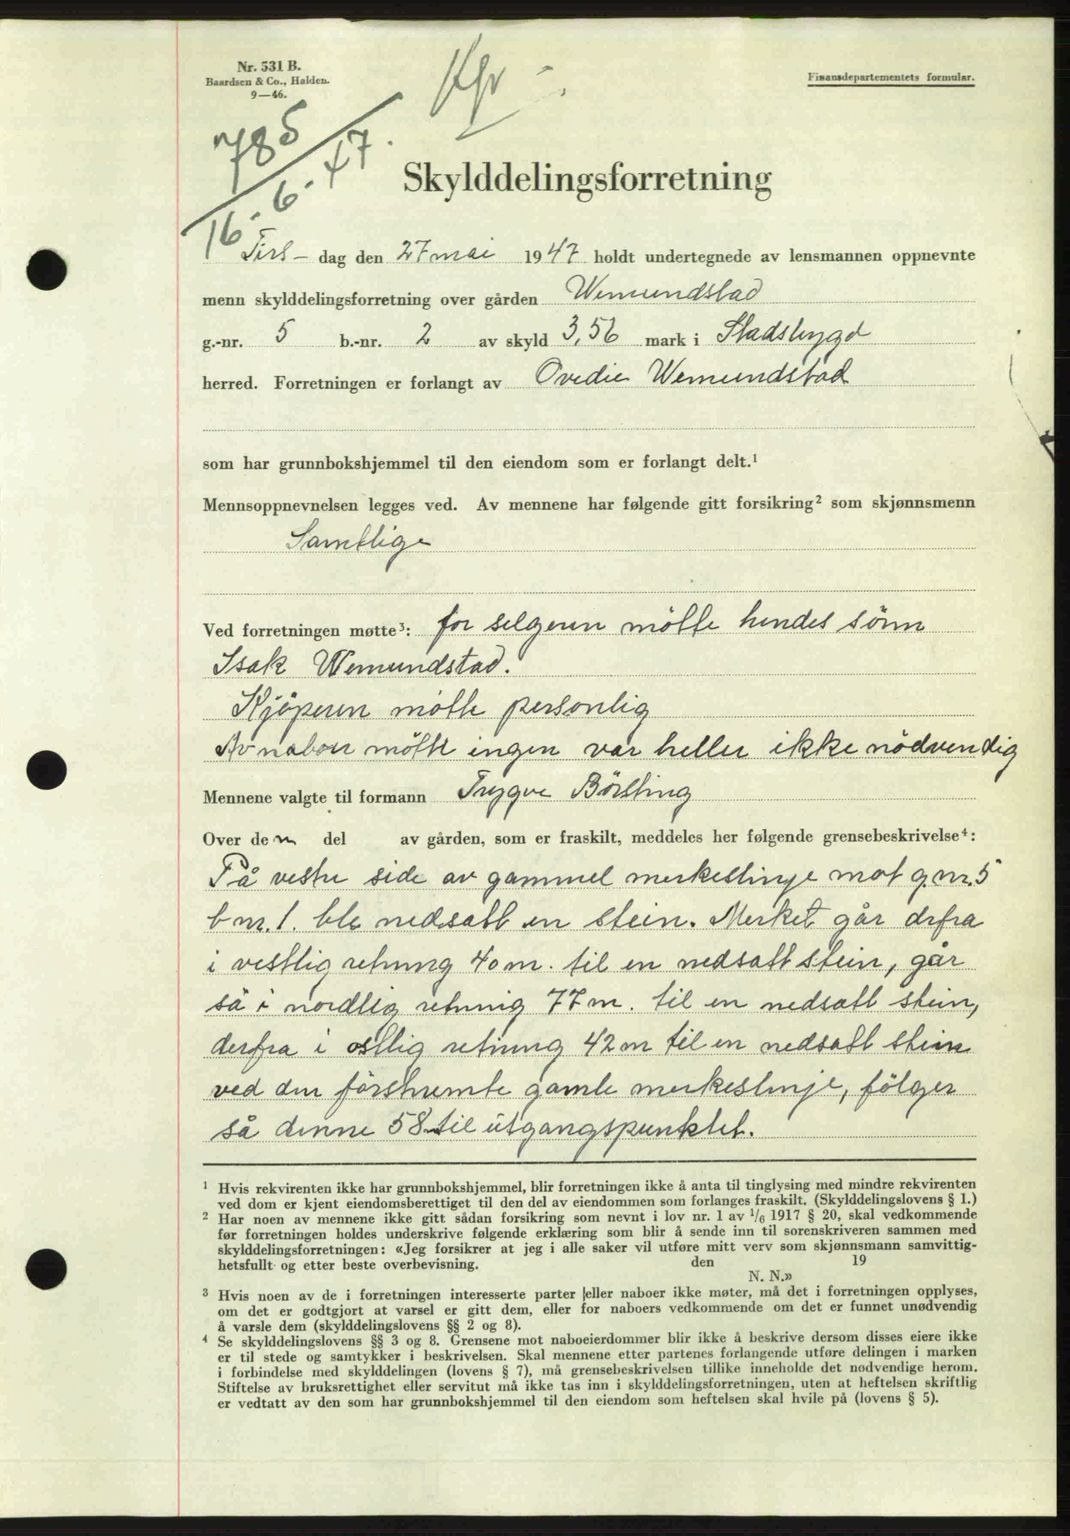 Nr. 531 B.
Baardsen & Co., Halden.
9—46.
Finansdepartementets formular.
785
16-6-47.
Skylddelingsforretning
Tirs- dag den 27 mai 1947 holdt undertegnede av lensmannen oppnevnte
menn skylddelingsforretning over gården Wemundstad
g.-nr. 5 b.-nr. 2 av skyld 3,56 mark i Stadsbygd
herred. Forretningen er forlangt av Ovedie Wemundstad
som har grunnbokshjemmel til den eiendom som er forlangt delt.¹
Mennsoppnevnelsen legges ved. Av mennene har følgende gitt forsikring² som skjønnsmenn
Samtlige
Ved forretningen møtte³: for selgeren mötte hendes sönn
Isak Wemundstad.
Kjöperen mötte personlig
Av naboer mötte ingen var heller ikke nödvendig
Mennene valgte til formann Trygve Börsting
Over den del av gården, som er fraskilt, meddeles her følgende grensebeskrivelse⁴:
På vestre side av gammel merkeslinje mot g.nr. 5
b nr. 1. ble nedsatt en stein. Merket går derfra
i vestlig retning 40 m. til en nedsatt stein, går
så i nordlig retning 77 m. til en nedsatt stein,
derfra i östlig retning 42 m til en nedsatt stein
ved den förstnemte gamle merkeslinje, fölger
så denne 58 til utgangspunktet.
¹ Hvis rekvirenten ikke har grunnbokshjemmel, blir forretningen ikke å anta til tinglysing med mindre rekvirenten
ved dom er kjent eiendomsberettiget til den del av eiendommen som forlanges fraskilt. (Skylddelingslovens § 1.)
² Har noen av mennene ikke gitt sådan forsikring som nevnt i lov nr. 1 av 1/6 1917 § 20, skal vedkommende
før forretningen holdes underskrive følgende erklæring som blir å sende inn til sorenskriveren sammen med
skylddelingsforretningen: «Jeg forsikrer at jeg i alle saker vil utføre mitt verv som skjønnsmann samvittig-
hetsfullt og etter beste overbevisning. den 19
N. N.»
³ Hvis noen av de i forretningen interesserte parter eller naboer ikke møter, må det i forretningen opplyses,
om det er godtgjort at varsel er gitt dem, eller for naboers vedkommende om det er funnet unødvendig
å varsle dem (skylddelingslovens §§ 2 og 8).
⁴ Se skylddelingslovens §§ 3 og 8. Grensene mot naboeierdommer blir ikke å beskrive dersom disses eiere ikke
er til stede og samtykker i beskrivelsen. Skal mennene etter partenes forlangende utføre delingen i marken
i forbindelse med skylddelingen (lovens § 7), må grensebeskrivelsen tillike inneholde det nødvendige herom.
Stiftelse av bruksrettighet eller servitut må ikke tas inn i skylddelingsforretningen, uten at heftelsen skriftlig
er vedtatt av den som har grunnbokshjemmel til den eiendom som heftelsen skal hvile på (lovens § 5).